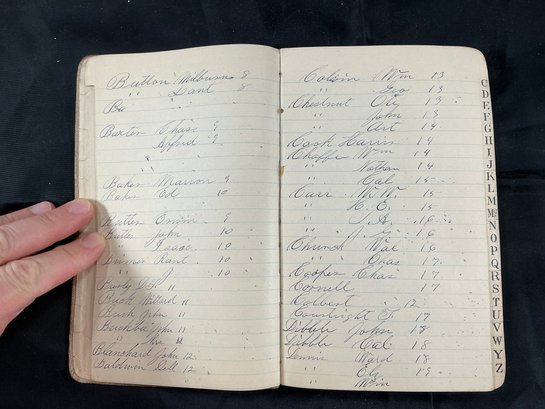 Button Milburn 8
" Dant 8
Bu
Baxter Chas 9
" Alfred 9
Baker Marion 9
Baker Ed 10
Butler 9
Butler John 10
" Isaac 10
10
" J. 10
"
Buck Millard "
Buck John "
John "
" Ira 11
Blanchard John 12
Baldwin 12
Colvin Wm 13
" Geo 13
Chestnut Oly 13
" John 13
" Art 14
Cook Harris 14
Chaffe Wm 14
" Nathan 14
" Cal 15
Carr W. W. 15
" C. E. 15
" J. A. 16
" J. G. 16
Church Wal 16
" Chas 17
Cooper Chas 17
Cornell 17
Colbert 12
Courtright F. 17
Dibble John 18
Dibble Cal 18
Dennis Ward 18
" Ely 19
" Wm
C
D
E
F
G
H
I
J
K
L
M
Mc
N
O
P
Q
R
S
T
U
V
W
Y
Z